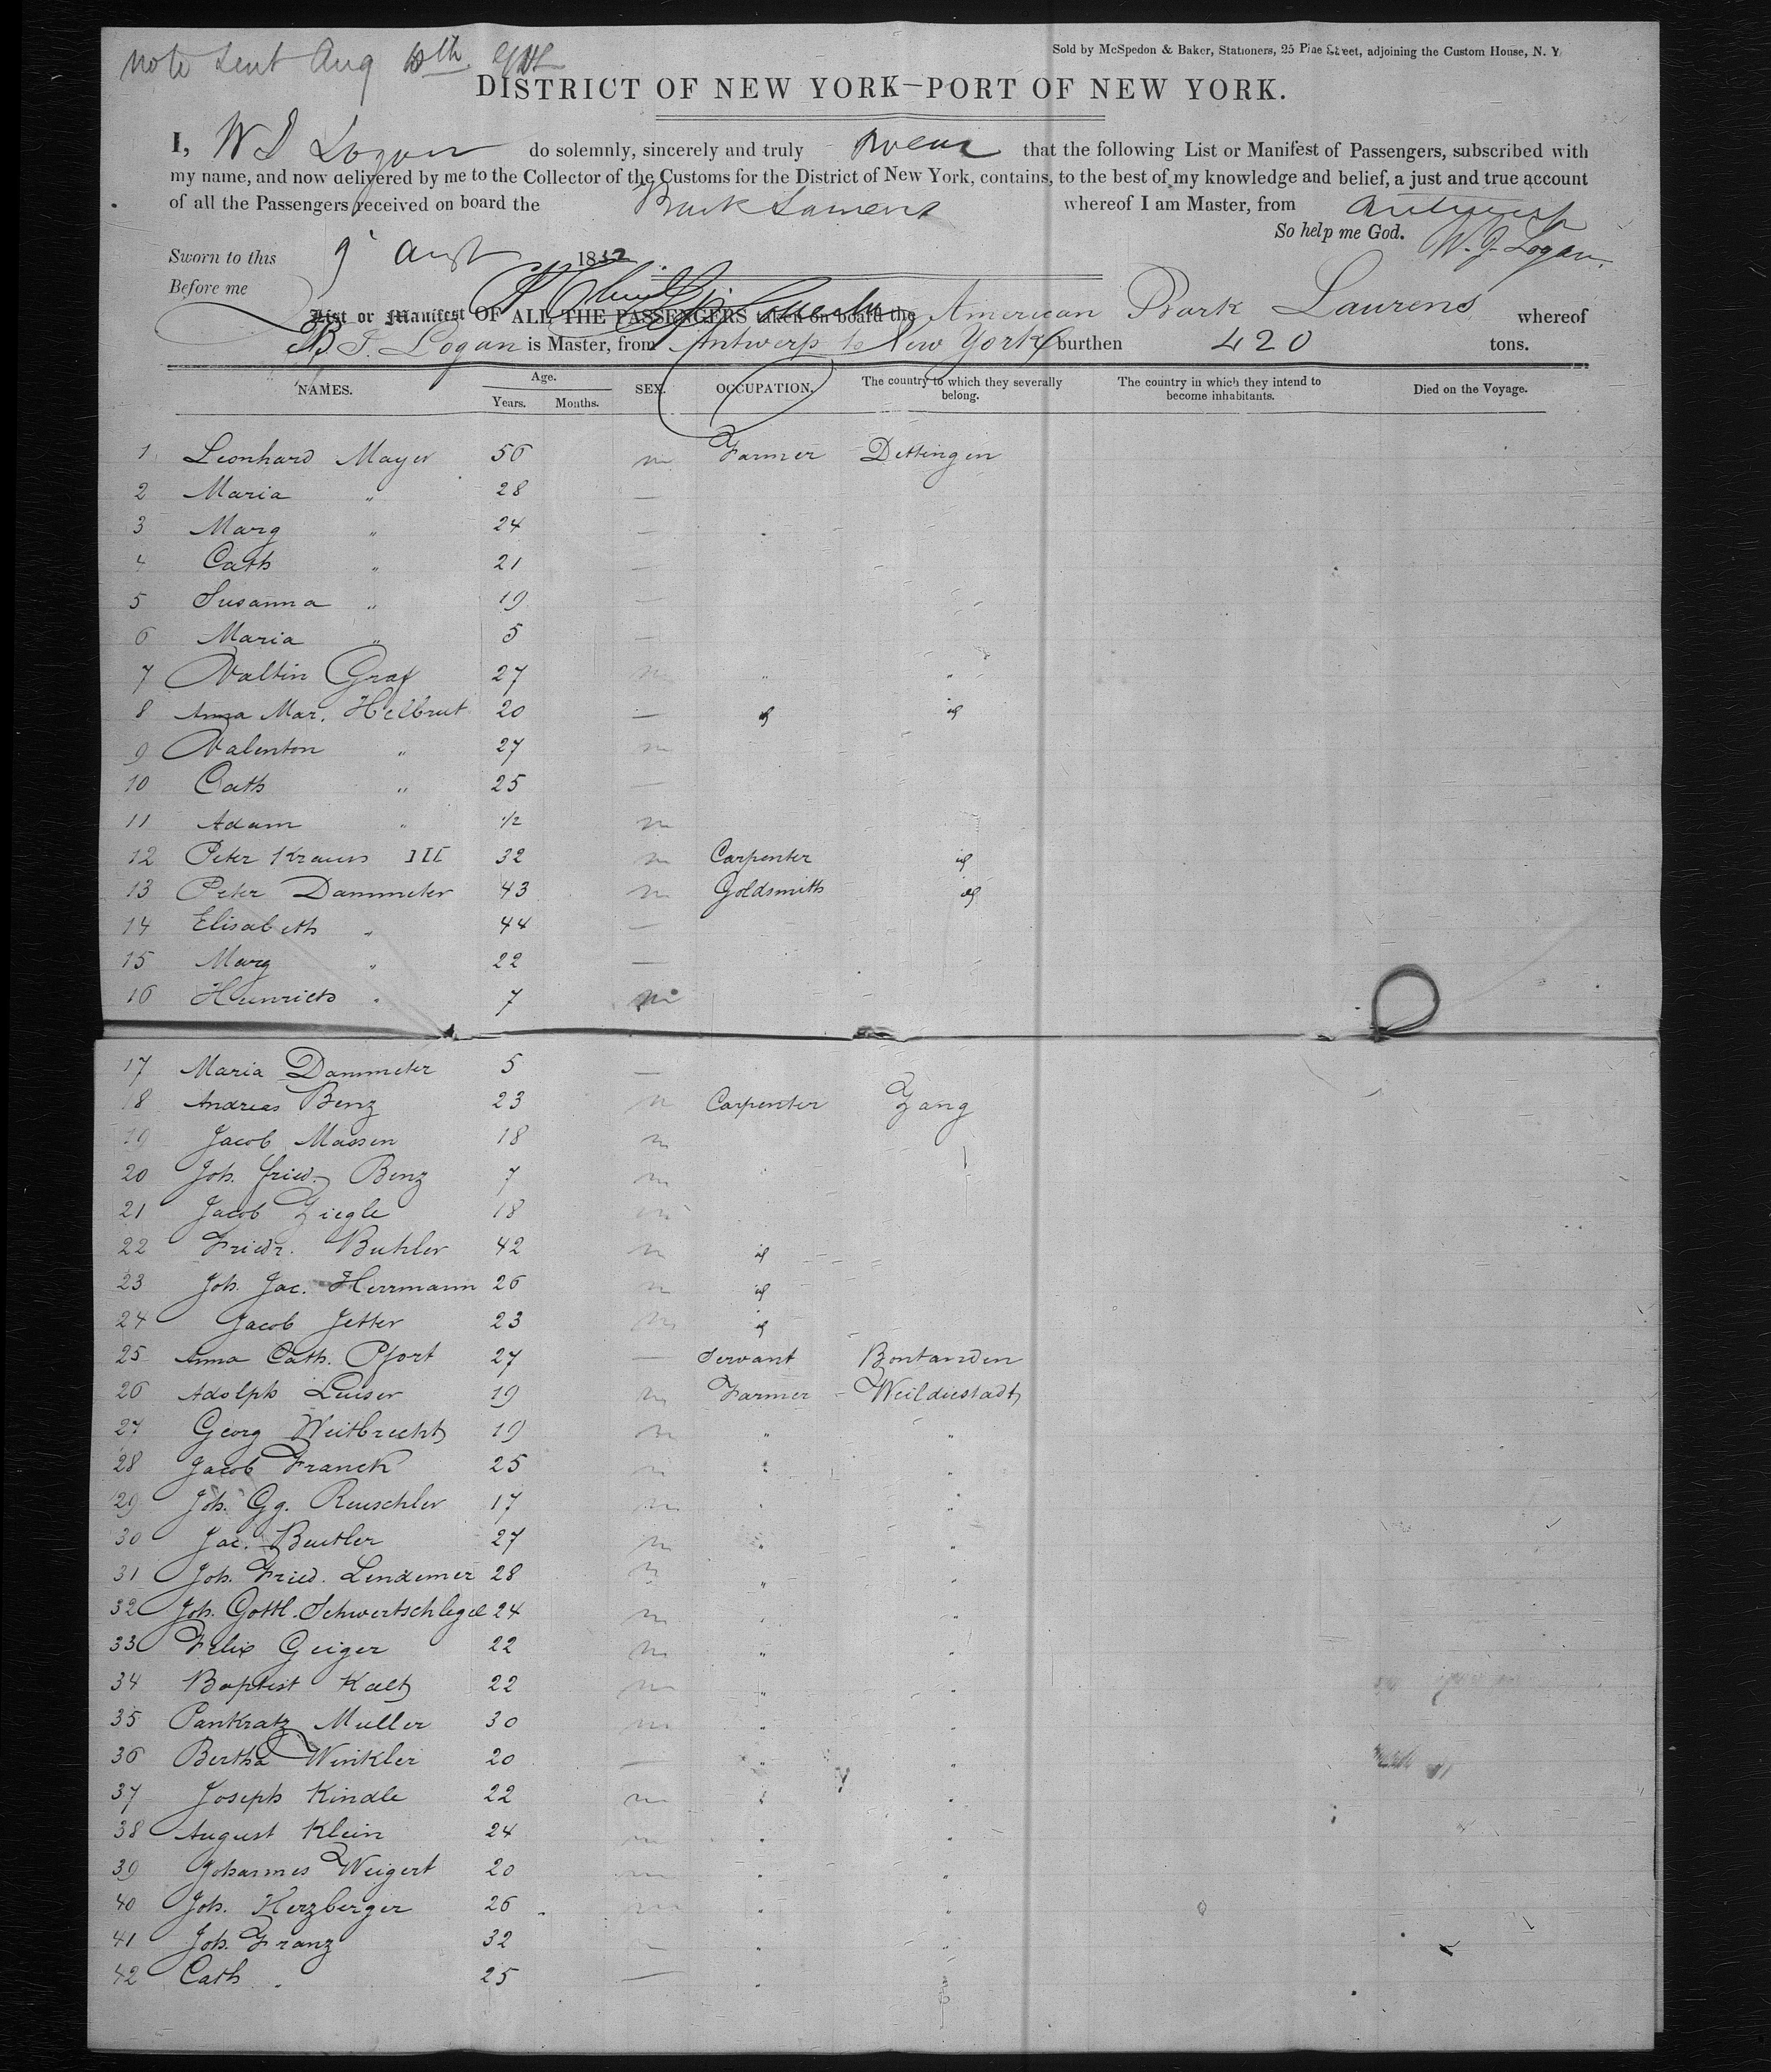 note sent Aug 10th
Sold by McSpedon & Baker, Stationers, 25 Pine Street, adjoining the Custom House, N. Y.
DISTRICT OF NEW YORK—PORT OF NEW YORK.
I, W J Logan do solemnly, sincerely and truly swear that the following List or Manifest of Passengers, subscribed with
my name, and now delivered by me to the Collector of the Customs for the District of New York, contains, to the best of my knowledge and belief, a just and true account
of all the Passengers received on board the Bark whereof I am Master, from Antwerp
So help me God. W. J. Logan.
Sworn to this 9 Augt 1852
Before me
List or Manifest OF ALL THE PASSENGERS taken on board the American Bark Laurens whereof
Logan is Master, from Antwerp to New York burthen 420 tons.
NAMES. Age. Years. Months. SEX. OCCUPATION. The country to which they severally belong. The country in which they intend to become inhabitants. Died on the Voyage.
1 Leonhard Mayer 56 m Farmer Dettingen
2 Maria " 28 —
3 Marg " 24 —
4 Cath " 21 —
5 Susanna " 19 —
6 Maria " 5 —
7 Valtin Graf 27 m " "
8 Anna Mar. Helbrut 20 — id id
9 Valenton " 27 m
10 Cath " 25 —
11 Adam " 1/2 m
12 Peter Krauss III 32 m Carpenter id
13 Peter Dammeter 43 m Goldsmith id
14 Elisabeth " 44 —
15 Marg " 22 —
16 Heinrich " 7 m
17 Maria Dammeter 5 —
18 Andreas Benz 23 m Carpenter Zang
19 Jacob Massen 18 m
20 Joh. fried. Benz 7 m
21 Jacob Ziegle 18 m
22 Friedr. Buhler 42 m id
23 Joh. Jac. Herrmann 26 m id
24 Jacob Jetter 23 m id
25 Anna Cath. Pfort 27 — Servant Bontanden
26 Adolph Leuser 19 m Farmer Weildiestadt
27 Georg Weitbrecht 19 m " "
28 Jacob Franck 25 m " "
29 Joh. Gg. Reuschler 17 m " "
30 Jac. Beutler 27 m " "
31 Joh. Fried. Lendemer 28 m " "
32 Joh. Gottl. Schwertschlegel 24 m " "
33 Felix Geiger 22 m " "
34 Baptist Kalt 22 m " "
35 Pankratz Muller 30 m " "
36 Bertha Winkler 20 — " "
37 Joseph Kindle 22 m " "
38 August Klein 24 m " "
39 Johannes Weigert 20 m " "
40 Joh. Herzberger 26 m " "
41 Joh. Franz 32 — " "
42 Cath " 25 — "